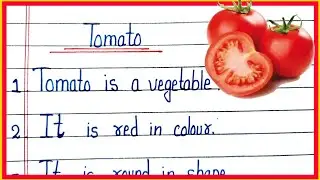 Tomato
1 Tomato is a vegetable.
2. It is red in colour.
It is round in shape